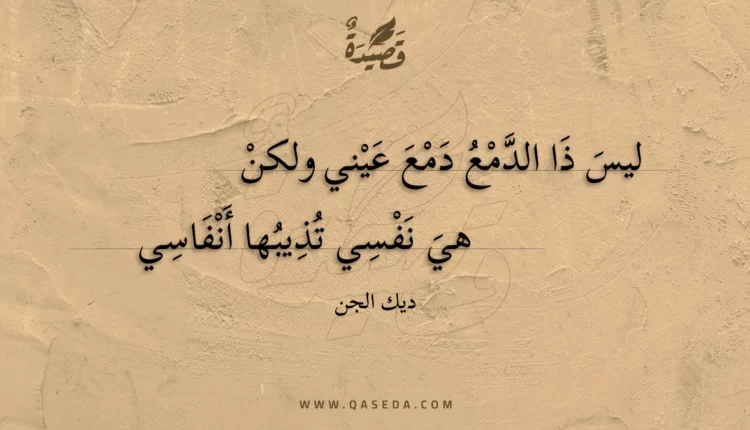 قَصِيدَةٌ
ليسَ ذَا الدَّمْعُ دَمْعَ عَيْني ولكنْ
هيَ نَفْسِي تُذِيبُها أَنْفَاسِي
ديك الجن
WWW.QASEDA.COM